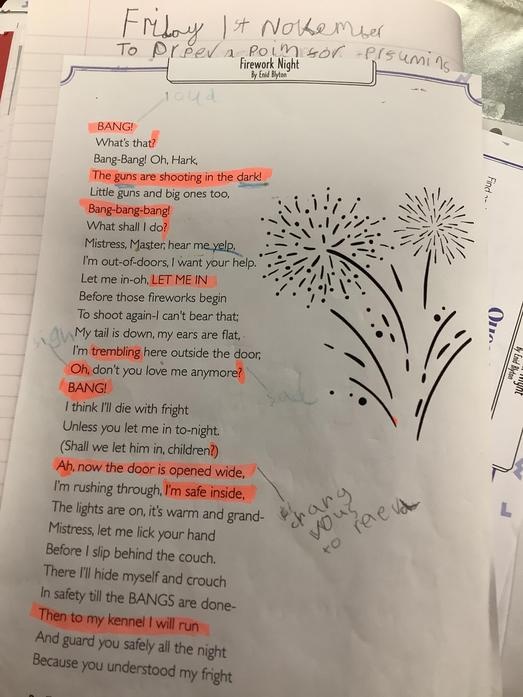 Friday 1st November
To Preper a poim for presuming
Firework Night
By Enid Blyton
loud
BANG!
What's that?
Bang-Bang! Oh, Hark,
The guns are shooting in the dark!
Little guns and big ones too,
Bang-bang-bang!
What shall I do?
Mistress, Master, hear me yelp,
I'm out-of-doors, I want your help.
Let me in-oh, LET ME IN
Before those fireworks begin
To shoot again-I can't bear that;
My tail is down, my ears are flat,
sigh
I'm trembling here outside the door,
Oh, don't you love me anymore?
sad
BANG!
I think I'll die with fright
Unless you let me in to-night.
(Shall we let him in, children?)
Ah, now the door is opened wide,
I'm rushing through, I'm safe inside,
The lights are on, it's warm and grand-
chang
your
to
Mistress, let me lick your hand
Before I slip behind the couch.
There I'll hide myself and crouch
In safety till the BANGS are done-
Then to my kennel I will run
And guard you safely all the night
Because you understood my fright
Find
Que
Night
Enid Blyton